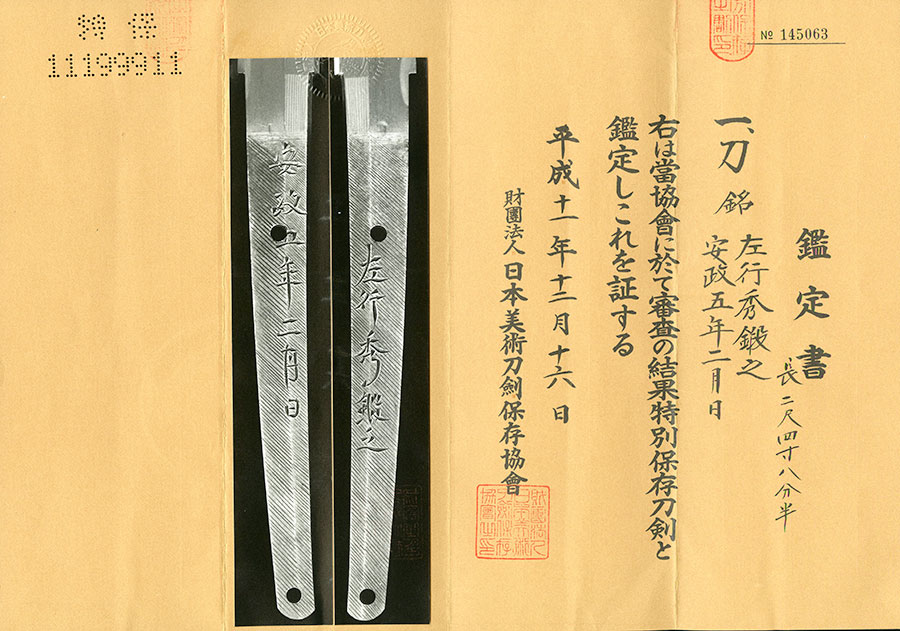 特保
11199911
№ 145063
鑑定書
一、刀 銘 左行秀鍛之
安政五年二月日
長二尺四寸八分半
右は當協會に於て審査の結果特別保存刀剣と
鑑定しこれを証する
平成十一年十二月十六日
財團法人日本美術刀劍保存協會
左行秀鍛之
安政五年二月日